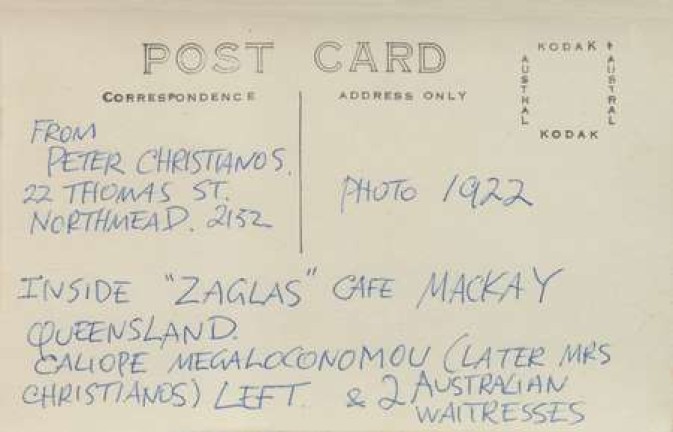 POST CARD
CORRESPONDENCE
ADDRESS ONLY
KODAK
AUSTRAL
AUSTRAL
KODAK
FROM
PETER CHRISTIANOS.
22 THOMAS ST.
NORTHMEAD. 2152
PHOTO 1922
INSIDE "ZAGLAS" CAFE MACKAY
QUEENSLAND.
CALIOPE MEGALOCONOMOU (LATER MRS
CHRISTIANOS) LEFT & 2 AUSTRALIAN
WAITRESSES